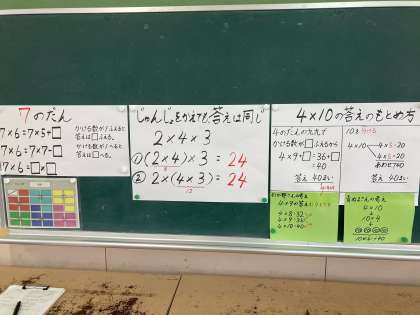 7のだん
7×6＝7×5＋□
かける数が1ふえると
答えは□ふえる。
7×6＝7×7－□
かける数が1へると
答えは□へる。
7×6＝□×□
じゅんじょをかえても、答えは同じ
2×4×3
① (2×4)×3＝24
8
② 2×(4×3)＝24
12
4×10の答えのもとめ方
4のだんの九九で
かける数が□ふえるから
4×9＋□＝36＋□
＝40
答え 40まい
10を分ける
4×10
4×5＝20
4×5＝20
あわせて40
答え 40まい
4×8＝32
4×9＝36
4×10＝40
さんの答え
4×10
↓
10×4
10×4＝40